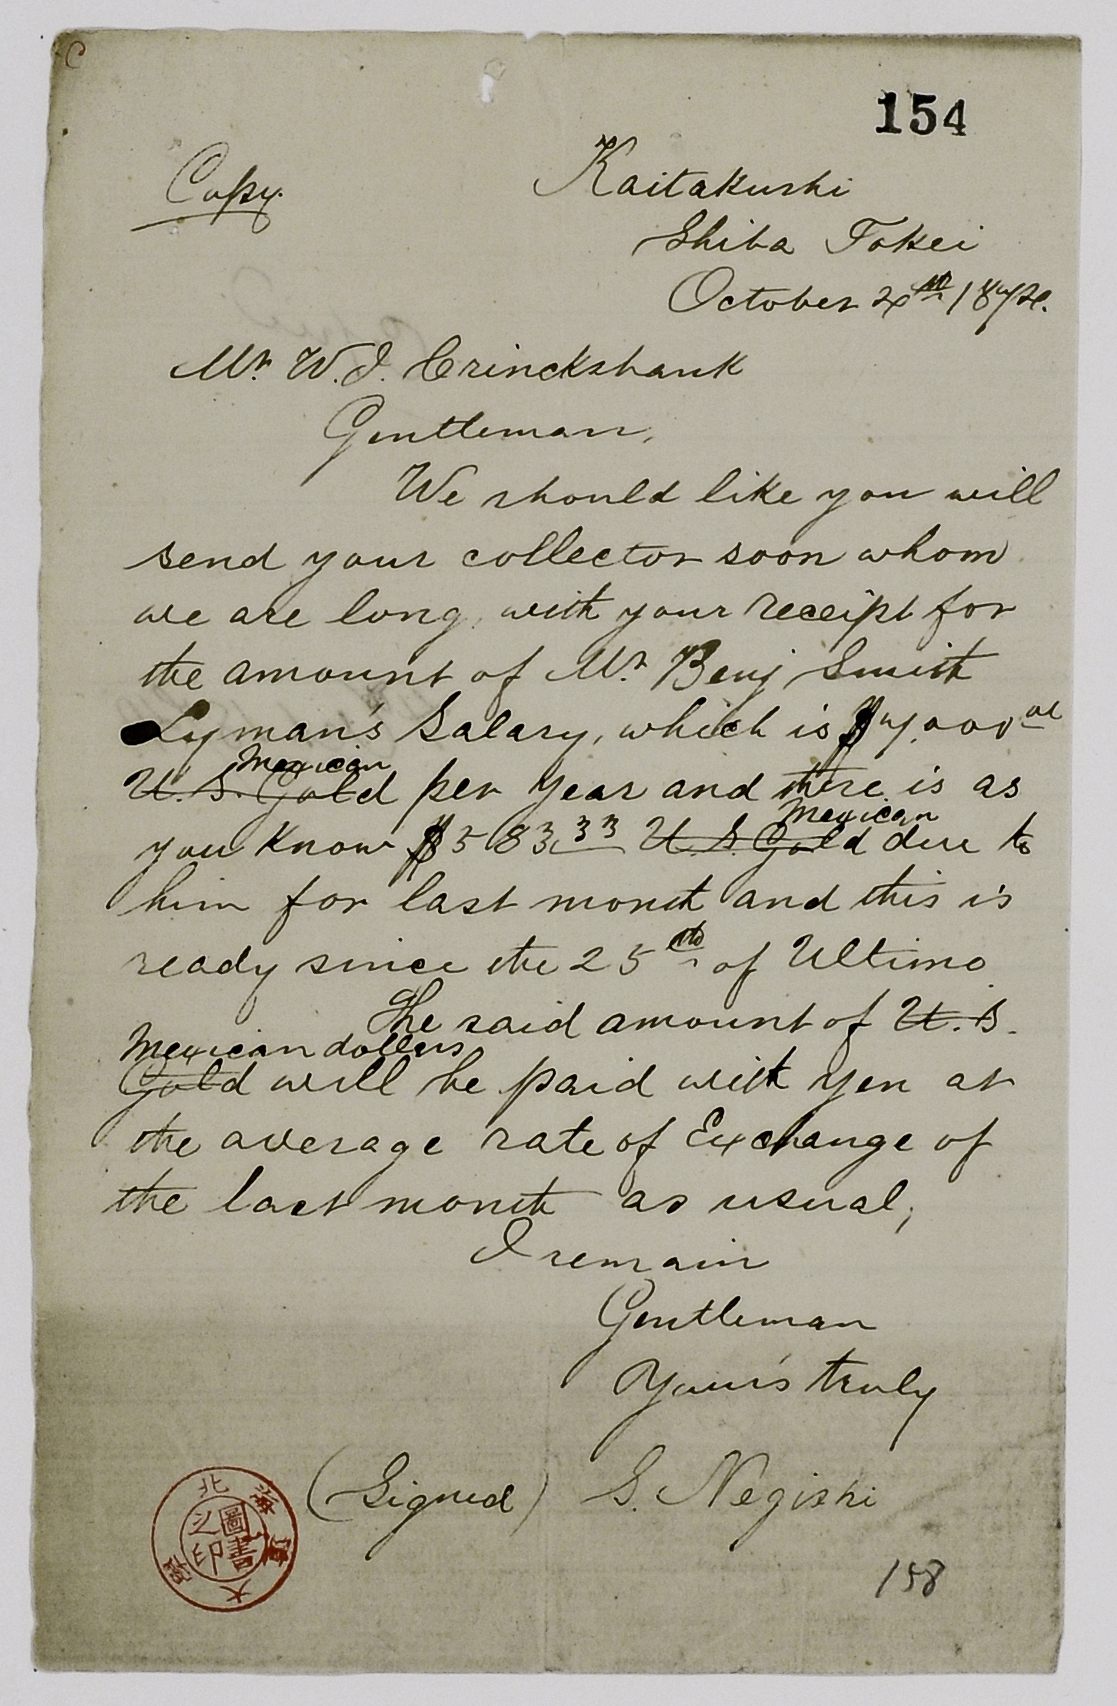 154
Copy.
Kaitakushi
Shiba Tokei
October 4th 1874.
Mr. W. J. Crinckshank
Gentleman,
We should like you will
send your collector soon whom
we are long, with your receipt for
the amount of Mr. Benj Smith
Lyman's Salary, which is $7,000 00
Mexican
U. S. Gold per year and there is as
Mexican
you know $583.33 U. S. Gold due to
him for last month and this is
ready since the 25th of Ultimo
The said amount of U. S.
Mexican dollars
Gold will be paid with yen at
the average rate of Exchange of
the last month as usual,
I remain
Gentleman
Your's truly
(Signed) S. Negishi
北海道大學
圖書之印
158